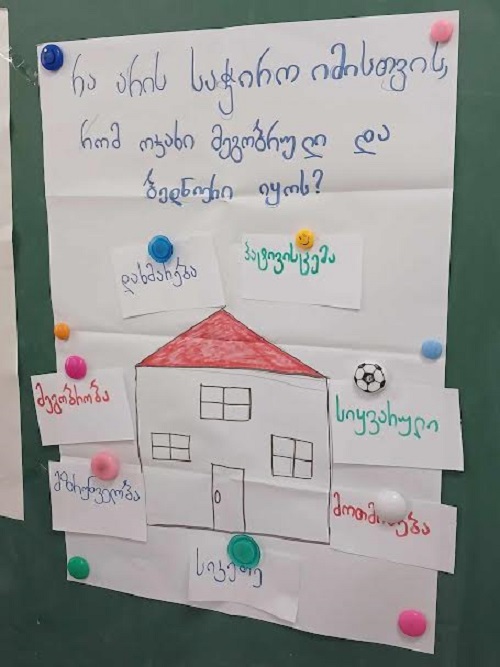 რა არის საჭირო იმისთვის,
რომ ოჯახი მეგობრული და
ბედნიერი იყოს?
დახმარება
პატივისცემა
მეგობრობა
სიყვარული
მზრუნველობა
მოთმინება
სიკეთე